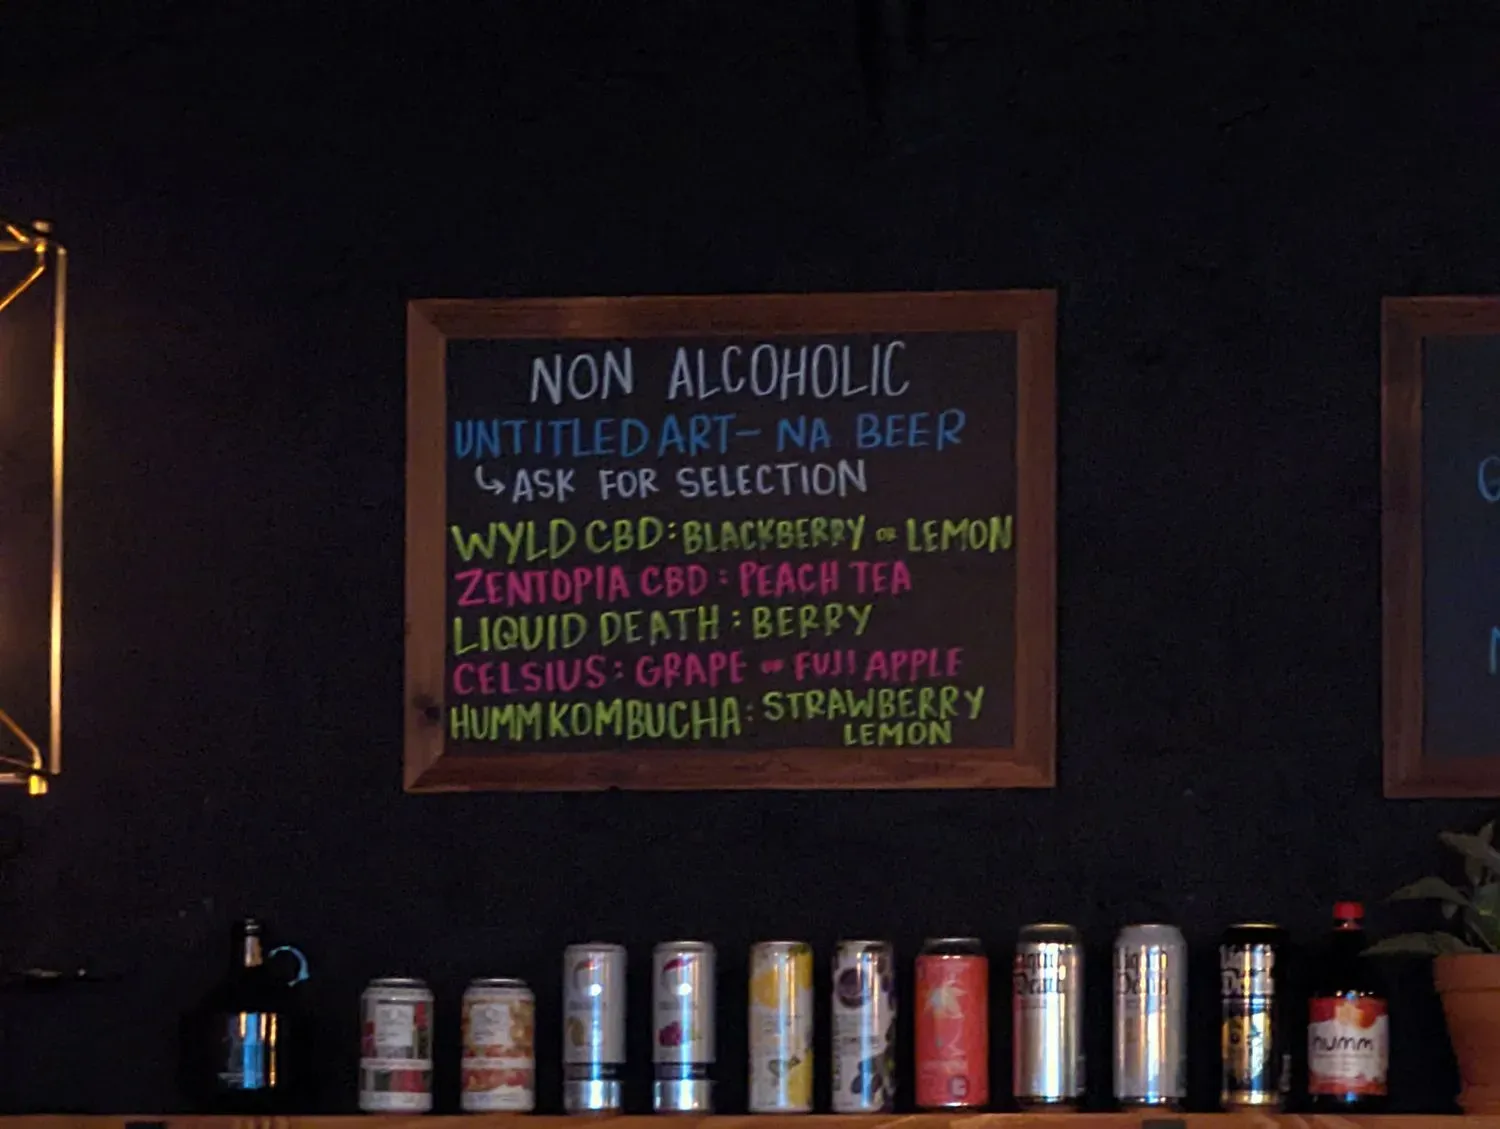 NON ALCOHOLIC
UNTITLED ART - NA BEER
↳ ASK FOR SELECTION
WYLD CBD: BLACKBERRY OR LEMON
ZENTOPIA CBD: PEACH TEA
LIQUID DEATH: BERRY
CELSIUS: GRAPE OR FUJI APPLE
HUMM KOMBUCHA: STRAWBERRY
LEMON
Liquid Death
Liquid Death
Death
humm